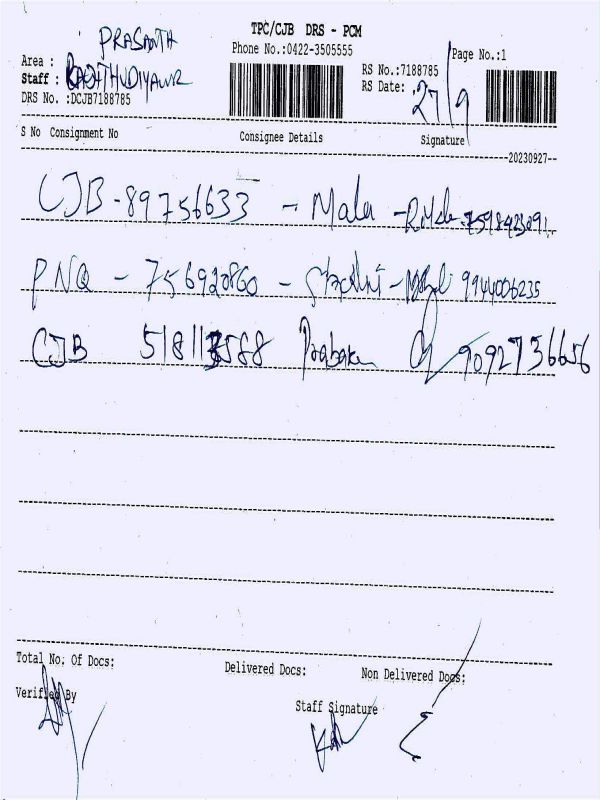 TPC/CJB DRS - PCM
PRASANTH
Phone No.:0422-3505555
Page No.:1
Area :
Staff :
RS No.:7188785
DRS No. :DCJB7188785
RS Date: 27/9
S No Consignment No Consignee Details Signature
20230927
CJB - 89756633 - Mala -
PNQ - 75692860 - - 9944006235
CJB Prabakar 9092736656
Total No. Of Docs: Delivered Docs: Non Delivered Docs:
Verified By Staff Signature